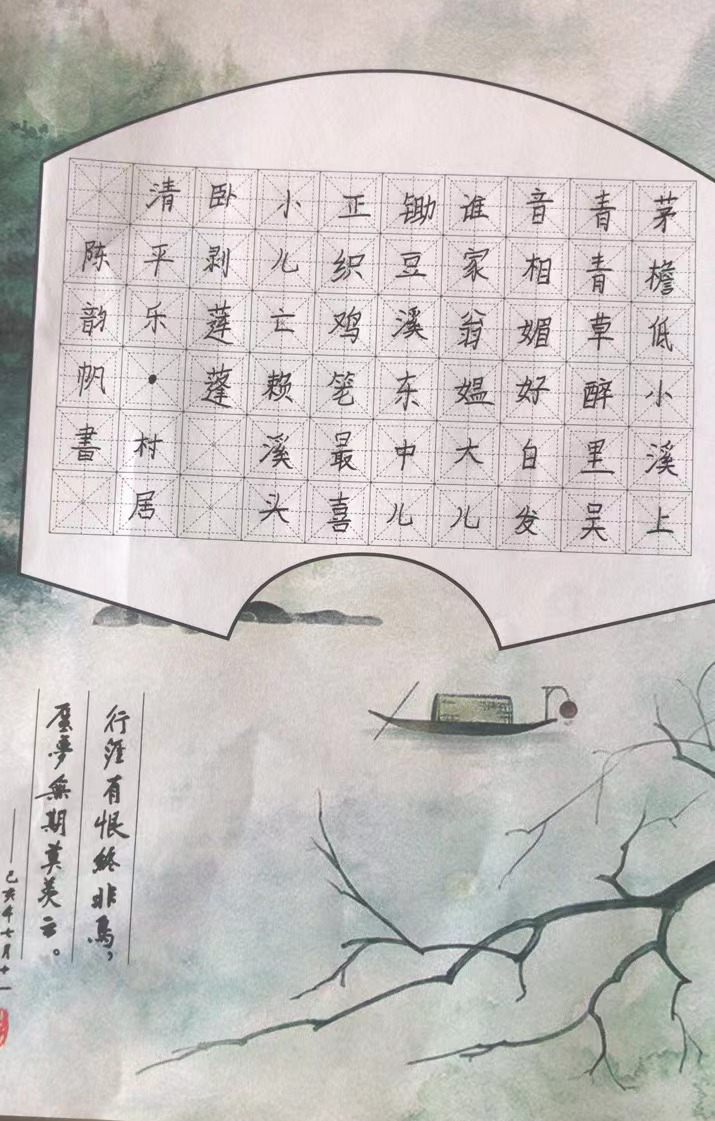 茅檐低小溪上
青青草醉里吴
音相媚好白发
谁家翁媪大儿
锄豆溪东中儿
正织鸡笼最喜
小儿亡赖溪头
卧剥莲蓬
清平乐·村居
陈韵帆書
行涯有恨終非馬，
蜃夢無期莫羡云。
——己亥年七月十一